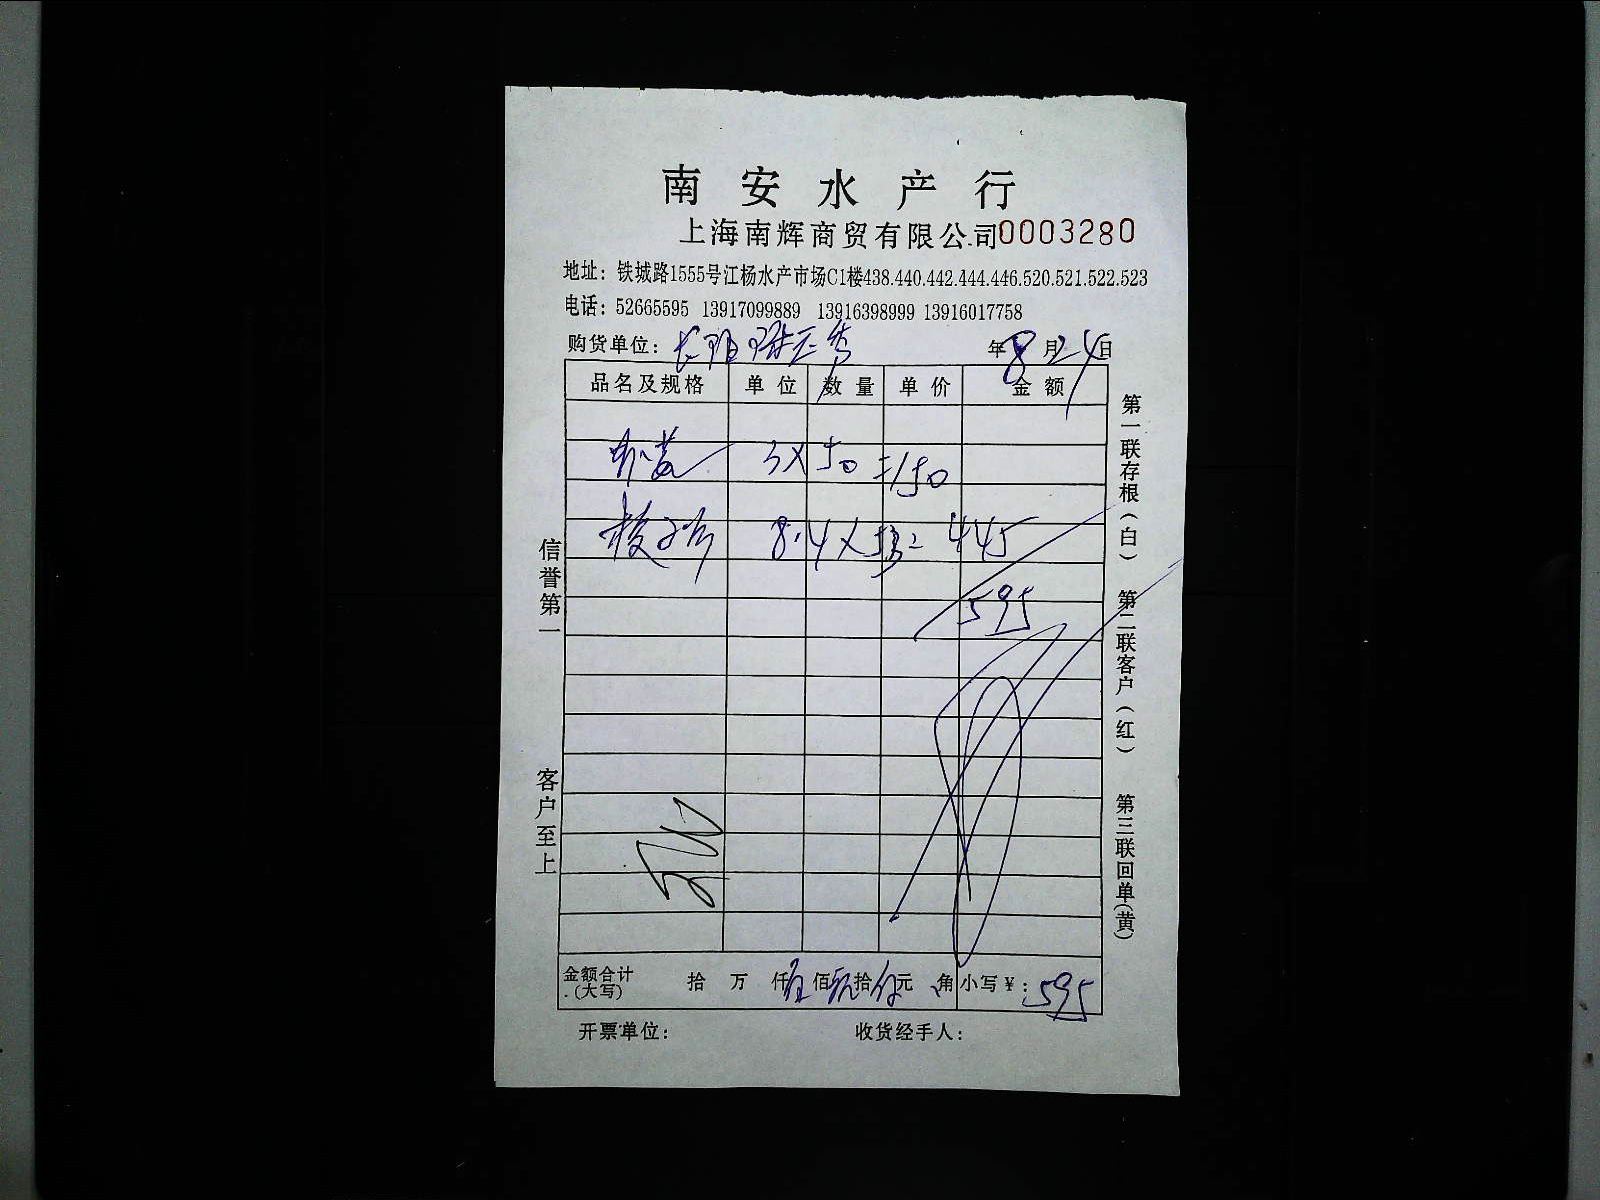 南安水产行
上海南辉商贸有限公司 0003280
地址：铁城路1555号江杨水产市场C1楼438.440.442.444.446.520.521.522.523
电话：52665595 13917099889 13916398999 13916017758
购货单位： 年8月24日
品名及规格 单位 数量 单价 金额
3X50=150
8.4X53=445
595
信誉第一 客户至上
第一联存根（白） 第二联客户（红） 第三联回单（黄）
金额合计（大写） 拾 万 仟伍佰玖拾伍元 角 小写￥：595
开票单位： 收货经手人：